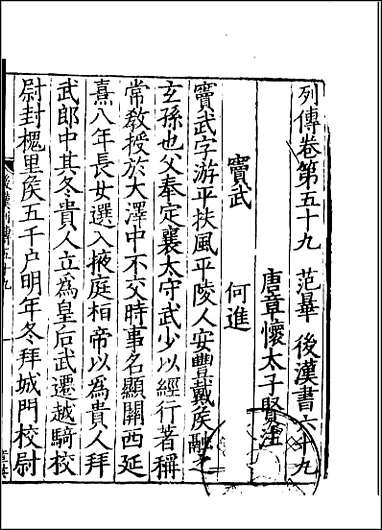 列傳卷第五十九　范曅　後漢書六十九
唐章懷太子賢注
竇武　何進
竇武字游平扶風平陵人安豐戴侯融之
玄孫也父奉定襄太守武少以經行著稱
常敎授於大澤中不交時事名顯關西延
熹八年長女選入掖庭桓帝以為貴人拜
武郎中其冬貴人立為皇后武遷越騎校
尉封槐里侯五千户明年冬拜城門校尉
後漢列傳五十九